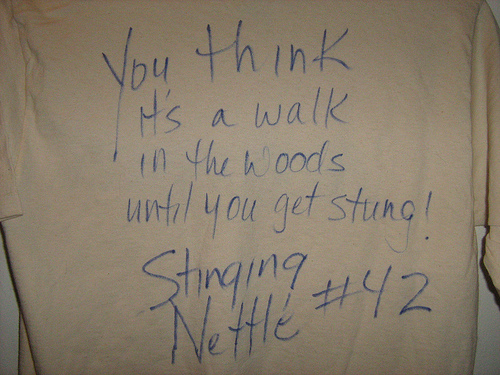 You think
it's a walk
in the woods
until you get stung!
Stinging
Nettle #42